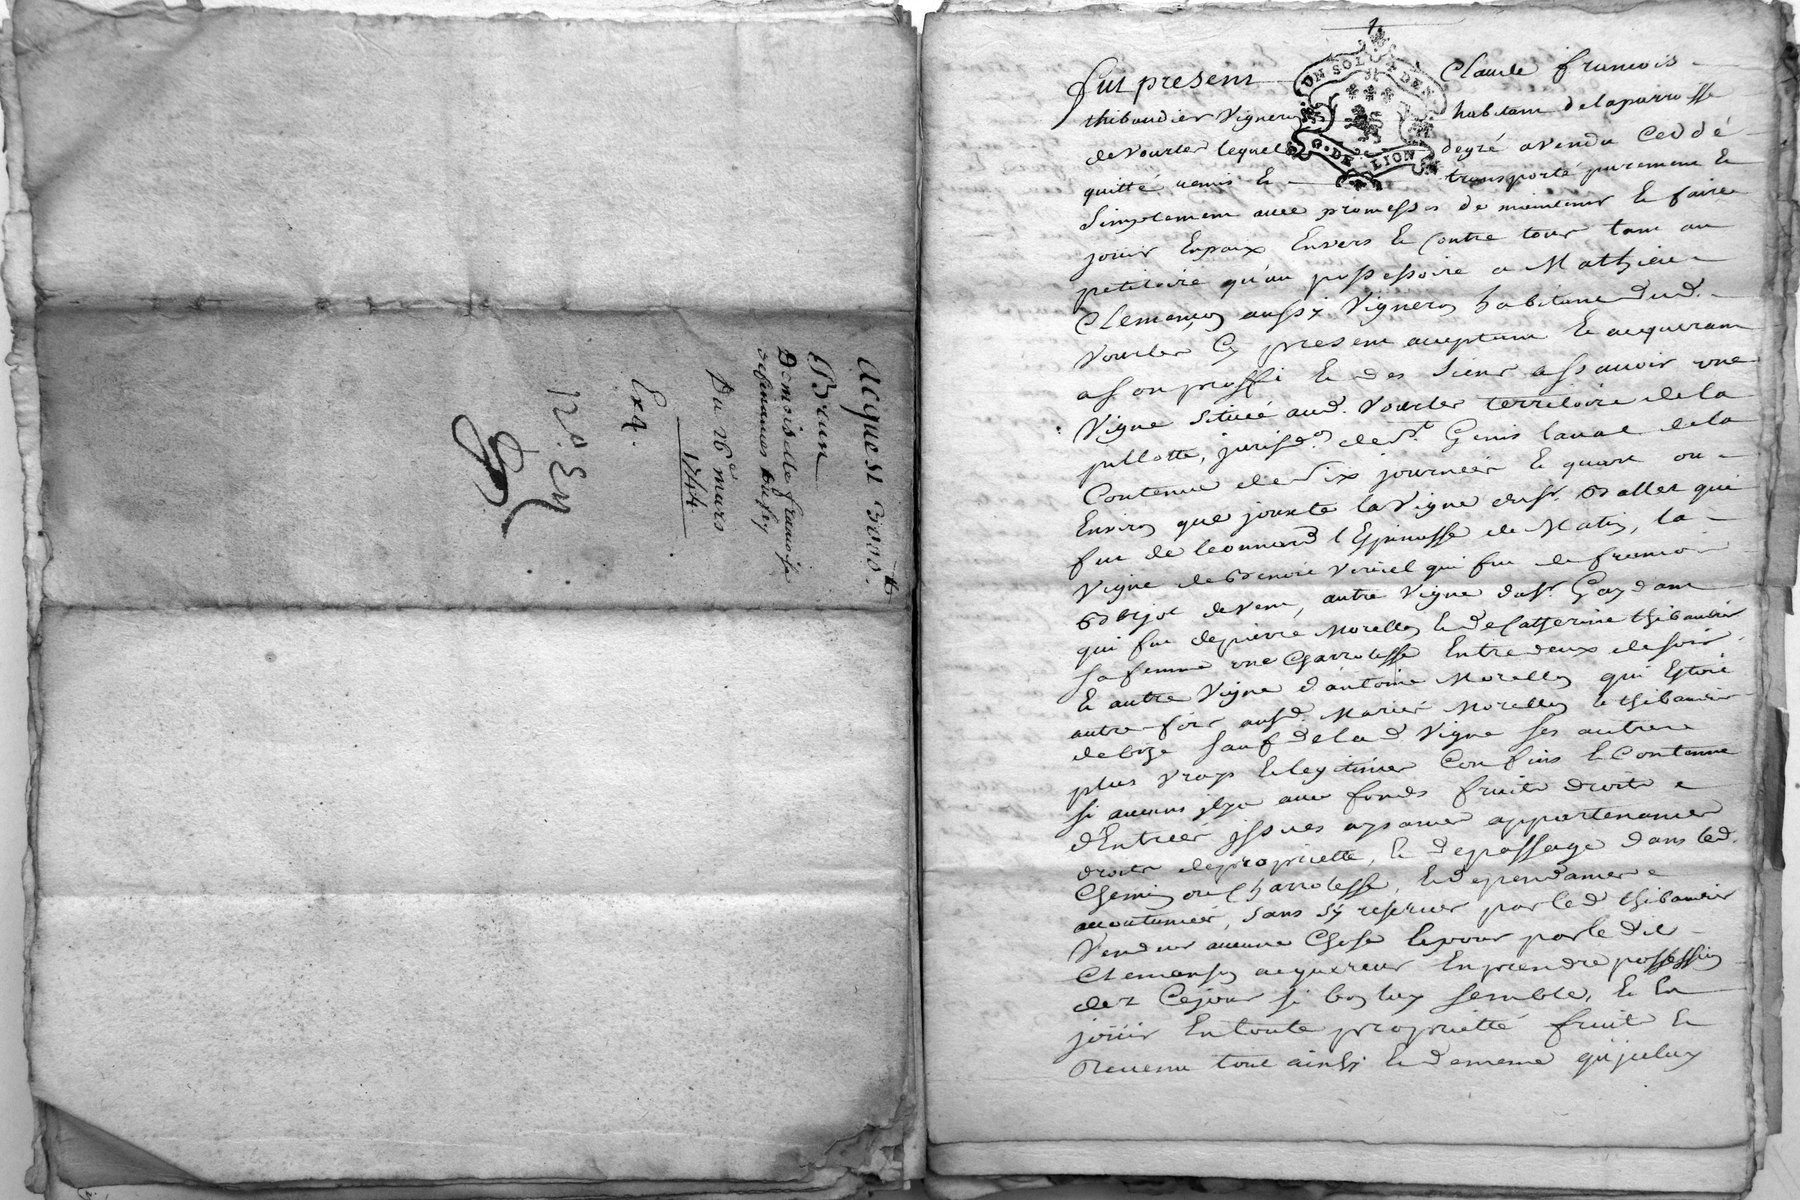 acquest 3000.tt
Brun
Demoiselle francoise
Du 26e mars
1744.
Exq.
12.
UN SOL 4 DEN.
G. DE LION
fut present Claude francois
thibaudier Vigneron habitant dela parroisse
de Vourles lequel degré a vendu Ceddé
quitté remis Et transporté purement Et
Simplement avec promesses de maintenir Et faire
jouir En paix Envers Et Contre tous tant au
petitoire qu'au possessoire a Mathieu
Clemençon aussy Vigneron habitant dud.
Vourles Cy present acceptant Et acquerant
a son proffit Et des siens assavoir une
Vigne située aud. Vourles territoire de la
pullotte, jurisd.on de St. Genis laval de la
Contenue de dix journées Et quart ou
Environ que jouxte la Vigne du sr. Ballet qui
fut de leonnard l'Epinasse de Matin, la
Vigne de Benoit Verriel qui fut de francois
de vent, autre Vigne du sr Gay dam
qui fut de pierre Morellon Et de Catherine thibaudier
sa femme une Charrotesse Entre deux de soir
Et autre Vigne d'antoine Morellon qui Etoit
autre fois ausd. Mariés Morellon Et thibaudier
de bize sauf de lad Vigne ses autres
plus vrays Et legitimes Confins Et Contenue
si aucuns il y a avec fonds fruits droits
d'Entrées issues aysances appartenances
droits de propriette, Et de passage dans led.
Chemin ou Charrotesse, Et dependances
accoutumées, sans s'y reserver par led thibaudier
Vendeur aucune Chose Et pour par le dit
Clemenson acquereur En prendre possession
dez Cejour si bon luy semble, Et En
joüir En toute proprietté fruits Et
Revenu tout ainsi Et de meme qu'jceluy